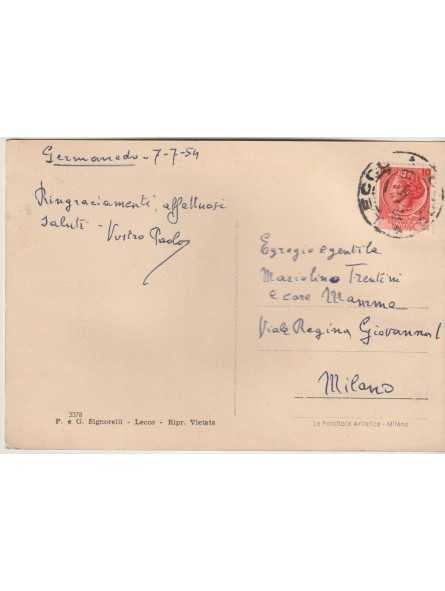 Germanedo - 7-7-54
Ringraziamenti, affettuosi
saluti - Vostro Paolo
LECCO
10
Egregio e gentile
Mariolino Trentini
e care Mamma
Viale Regina Giovanna 1
Milano
3378
P. e G. Signorelli - Lecco - Ripr. Vietata
La Fototipia Artistica - Milano